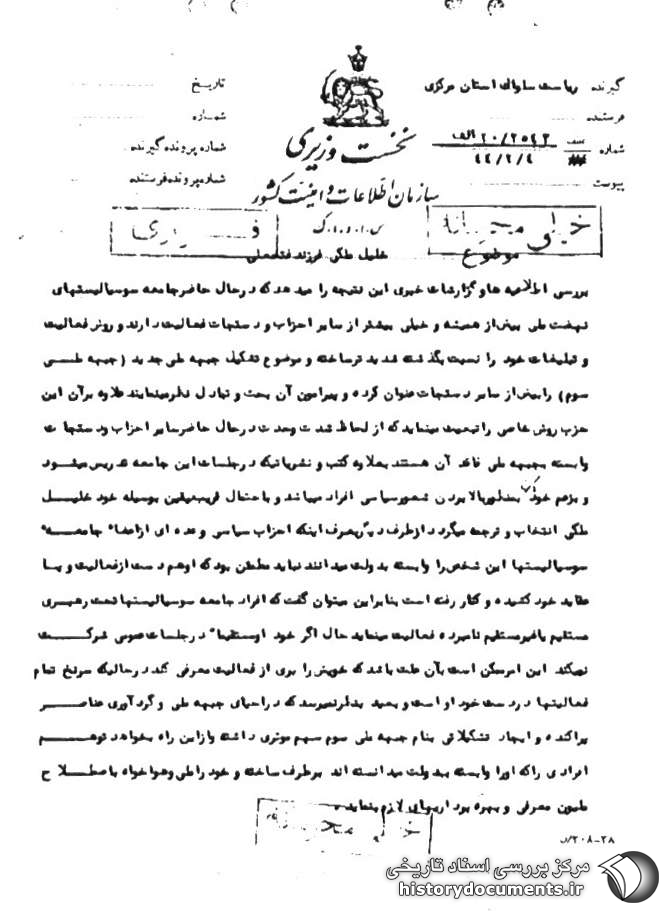 گیرنده ریاست ساواک استان مرکزی
تاریخ
فرستنده
شماره
شماره ۲۰/۲۵۴۳ الف
۴۴/۲/۴
شماره پرونده گیرنده
پیوست
شماره پرونده فرستنده
نخست وزیری
سازمان اطلاعات و امنیت کشور
س.ا.و.ا.ک
خیلی محرمانه
موضوع خلیل ملکی فرزند فتحعلی
بررسی اطلاعیه ها و گزارشات خبری این نتیجه را میدهد که در حال حاضر جامعه سوسیالیستهای
نهضت ملی بیش از همیشه و خیلی بیشتر از سایر احزاب و دستجات فعالیت دارند و روش فعالیت
و تبلیغات خود را نسبت بگذشته شدیدتر ساخته و موضوع تشکیل جبهه ملی جدید (جبهه ملی
سوم) را بیش از سایر دستجات عنوان کرده و پیرامون آن بحث و تبادل نظر مینمایند علاوه بر آن این
حزب روش خاصی را تبعیت مینماید که از لحاظ شدت وحدت در حال حاضر سایر احزاب و دستجات
وابسته بجبهه ملی فاقد آن هستند بعلاوه کتب و نشریاتیکه در جلسات این جامعه تدریس میشود
و بزعم خودشان بمنظور بالا بردن شعور سیاسی افراد میباشد و باحتمال قریب بیقین بوسیله خود خلیل
ملکی انتخاب و ترجمه میگردد از طرف دیگر بصرف اینکه احزاب سیاسی و عده ای از اعضاء جامعه
سوسیالیستها این شخص را وابسته بدولت میدانند نباید مطمئن بود که او هم دست از فعالیت و یا
عقاید خود کشیده و کنار رفته است بنابراین میتوان گفت که افراد جامعه سوسیالیستها تحت رهبری
مستقیم یا غیر مستقیم نامبرده فعالیت مینماید حال اگر خود او مستقیماً در جلسات عمومی شرکت
نمیکند این امر ممکن است بآن علت باشد که خویش را بری از فعالیت معرفی کند در حالیکه سرنخ تمام
فعالیتها در دست خود او است و بعید بنظر نمیرسد که در احیای جبهه ملی و گردآوری عناصر
پراکنده و ایجاد تشکیلاتی بنام جبهه ملی سوم سهم موثری داشته و از این راه بخواهد توهم
افرادی را که او را وابسته بدولت میدانسته اند برطرف ساخته و خود را ملی و هواخواه باصطلاح
ملیون معرفی و بهره برداریهای لازم بنماید.
خیلی محرمانه
۲۰۸-۲۸/د
مرکز بررسی اسناد تاریخی
historydocuments.ir